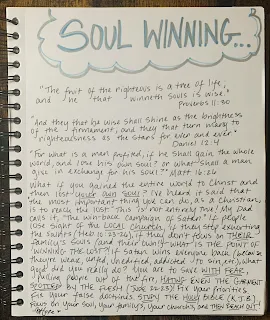 SOUL WINNING...
"The fruit of the righteous is a tree of life,
and he that winneth souls is wise."
Proverbs 11:30
"And they that be wise shall shine as the brightness
of the firmament; and they that turn many to
righteousness as the stars for ever and ever"
Daniel 12:4
"For what is a man profited, if he shall gain the whole
world, and lose his own soul? or what shall a man
give in exchange for his soul?" Matt 16:26
What if you gained the entire world to Christ and
then lost your own soul? I've heard it said that
the most important thing we can do, as a Christian,
is to reach the lost. This is not entirely true! My Dad
calls it, "the win-back campaign of Satan". If people
lose sight of the LOCAL CHURCH, if they stop executing
the builders (Heb 10:23-26), if they don't focus on THEIR
family's souls (and their own!) WHAT IS THE POINT OF
WINNING THE LOST? If Satan wins everyone back (because
they're weak, unfed, unedified, addicted to sin, etc.) what
good did you really do? You are to SAVE WITH FEAR,
pulling people out of the fire, HATING EVEN THE GARMENT
SPOTTED BY THE FLESH (Jude 23). Fix your priorities,
fix your false doctrines, STUDY THE HOLY BIBLE (K.J.B.)
focus on your soul, your family's, your church's and THEN REACH OUT!